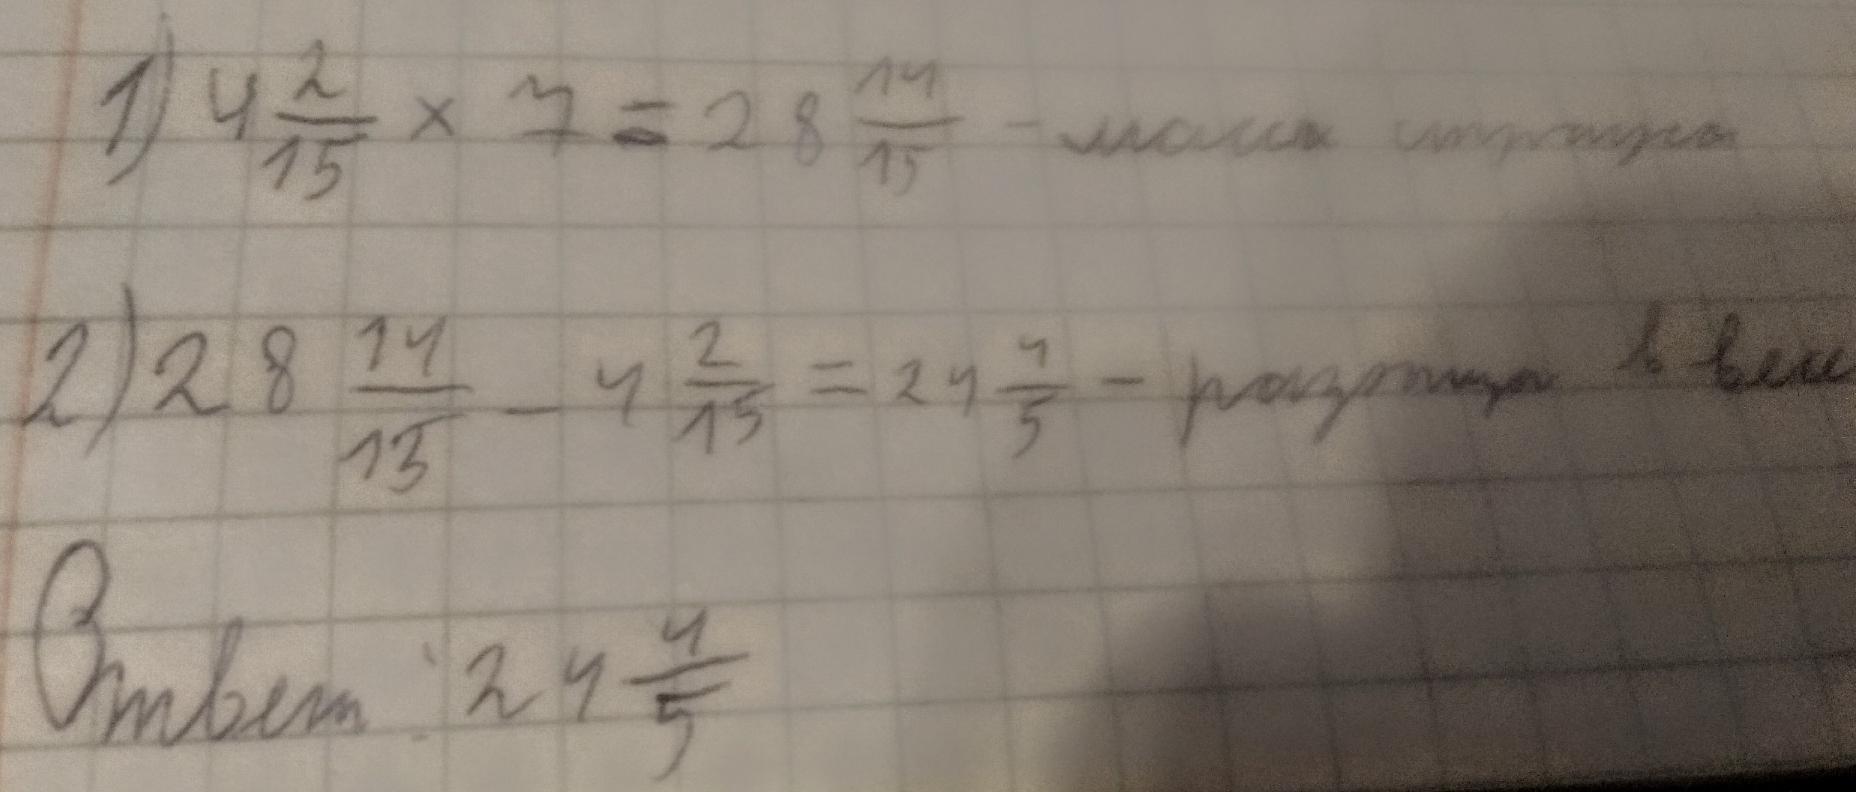 1) 4 2/15 × 7 = 28 14/15 - масса страуса
2) 28 14/15 - 4 2/15 = 24 4/5 - разница в весе
Ответ: 24 4/5